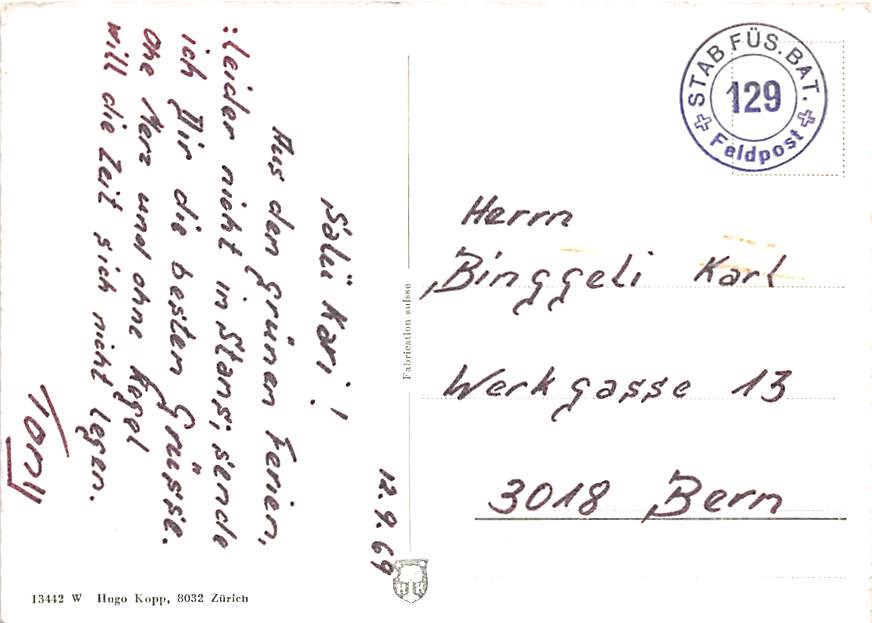 12.9.69
Salü Kari!
Aus den grünen Ferien,
:leider nicht in Stans; sende
ich Dir die besten Grüsse.
Ohe Merz und ohne Kegel
will die Zeit sich nicht legen.
Tony
STAB FÜS. BAT.
129
Feldpost
Herrn
Binggeli Karl
Werkgasse 13
3018 Bern
Fabrication suisse
13442 W Hugo Kopp, 8032 Zürich